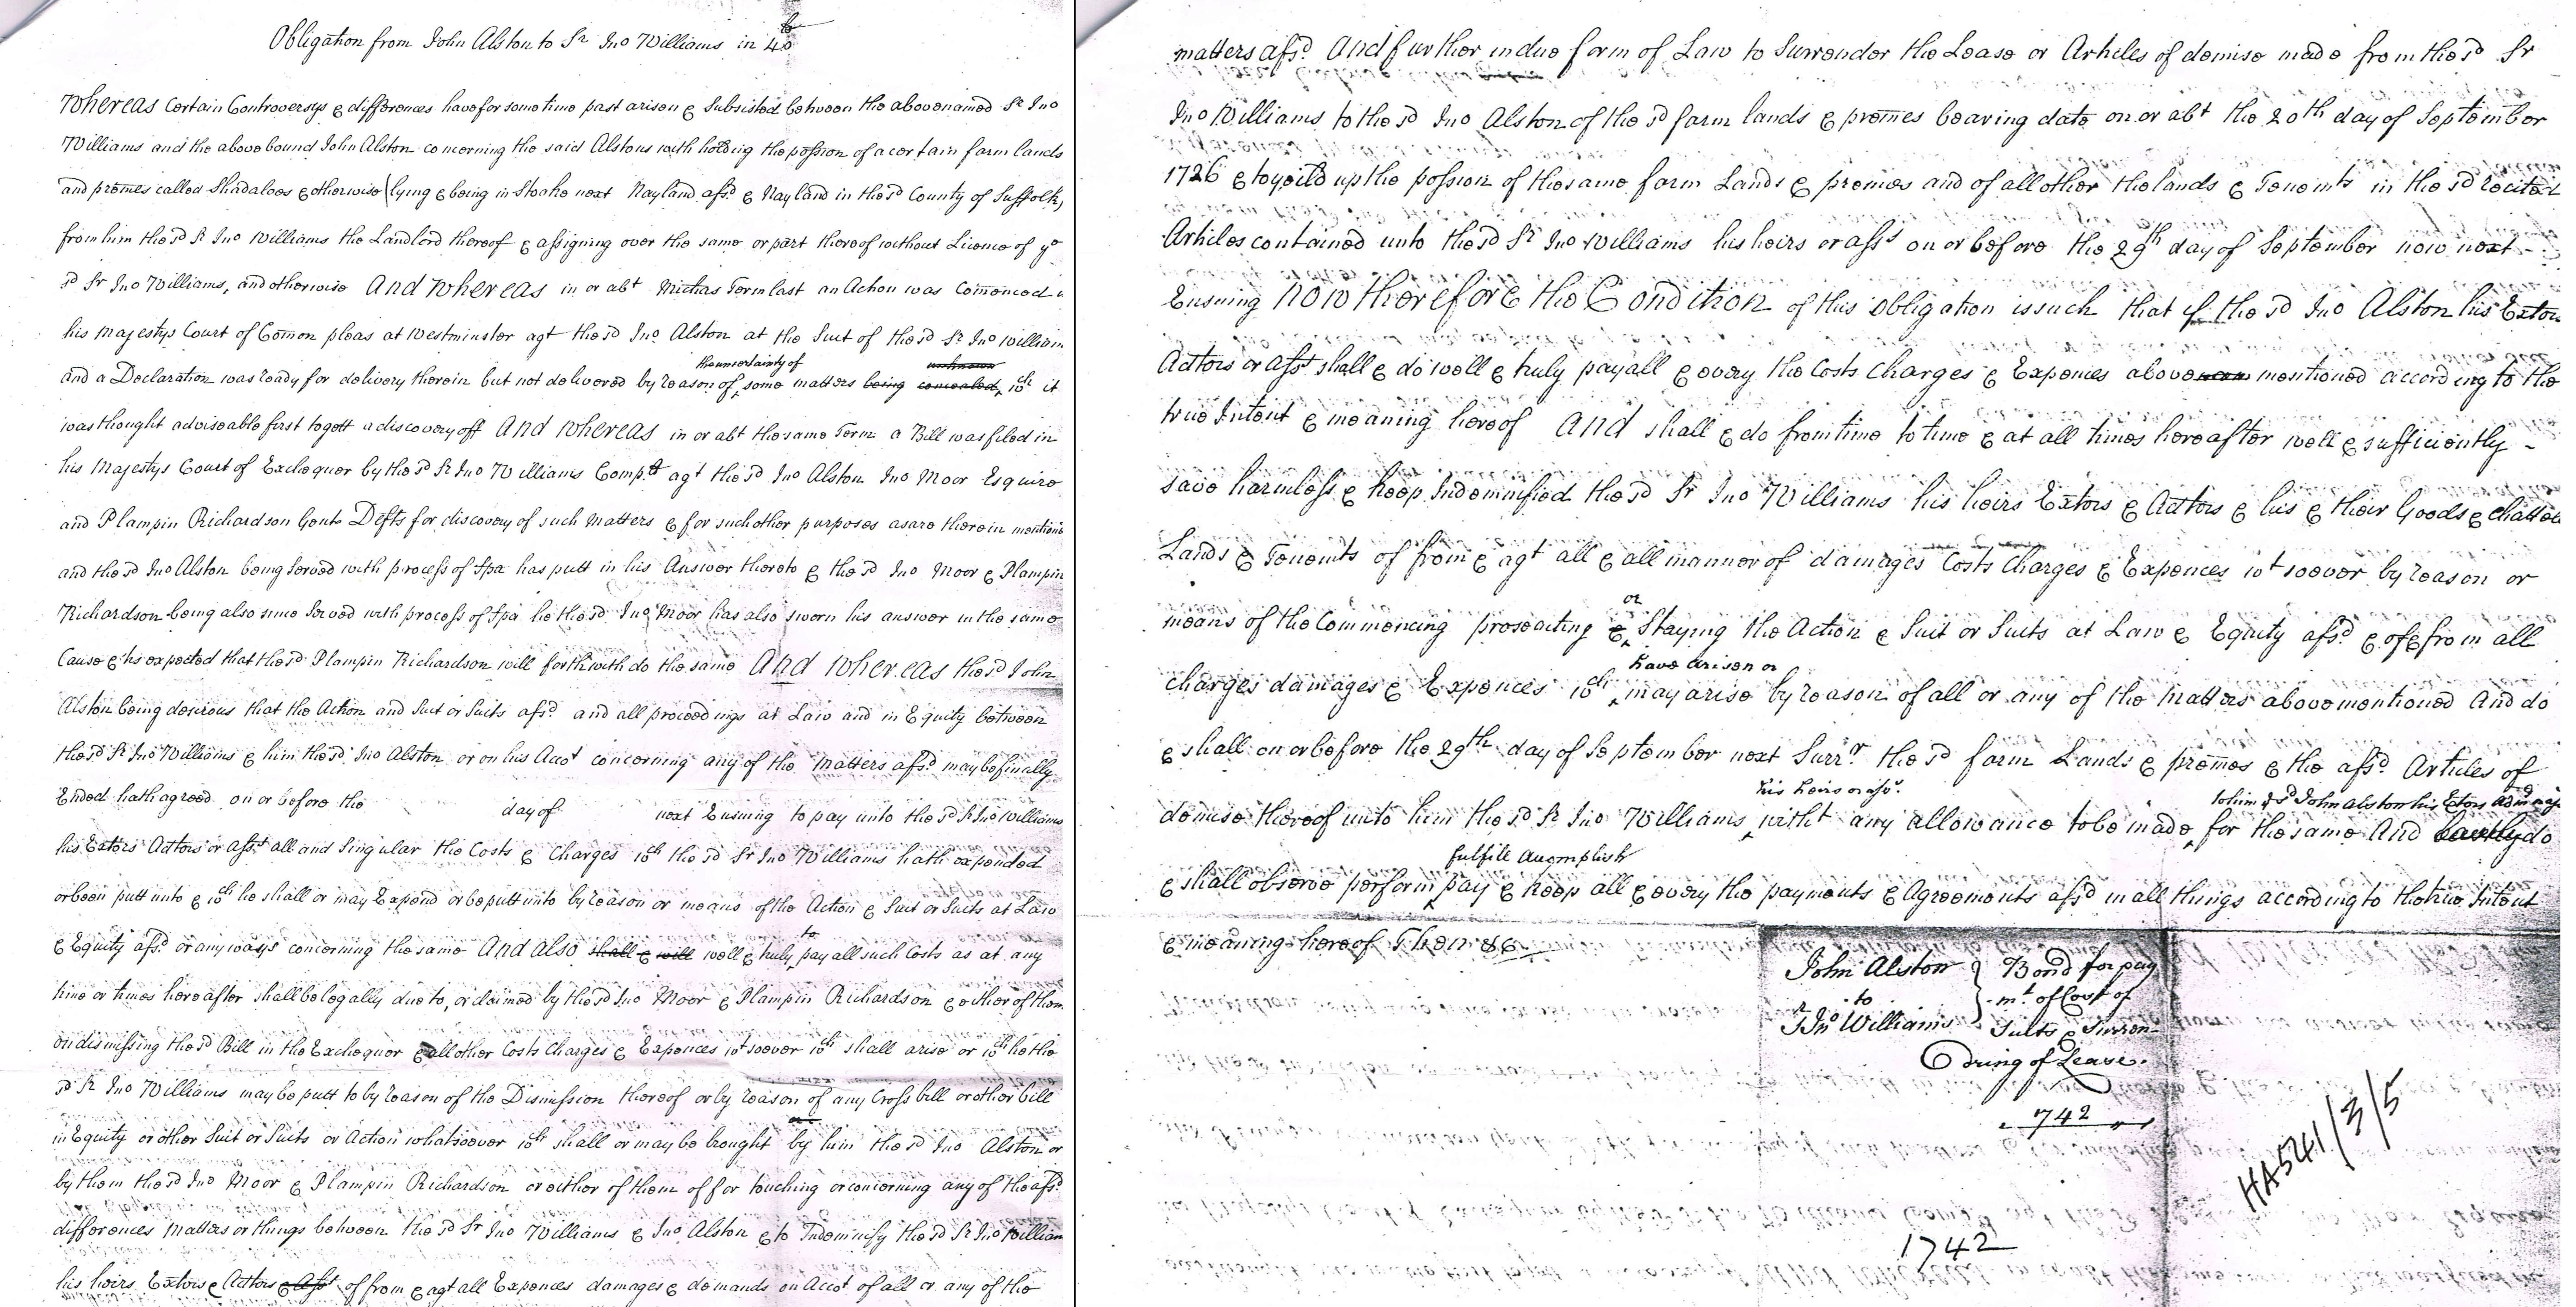 Obligation from John Alston to Sr Jno Williams in
Whereas Certain Controversys & differences have for some time past arisen & Subsisted between the abovenamed Sr Jno
Williams and the above bound John Alston concerning the said Alstons with holding the possion of a certain farm lands
and premes called Shadaloes & otherwise (lying & being in Stoake next Nayland afsd & Nayland in the sd County of Suffolk)
from him the sd Sr Jno Williams the Landlord thereof & assigning over the same or part thereof without Licence of ye
sd Sr Jno Williams, and otherwise And Whereas in or abt Michas Term last an Action was Comenced
his Majestys Court of Comon pleas at Westminster agt the sd Jno Alston at the Suit of the sd Sr Jno William
the uncertainty of unknown
and a Declaration was ready for delivery therein but not delivered by reason of some matters being concealed, wch it
was thought adviseable first to gett a discovery off And Whereas in or abt the same Term a Bill was filed in
his Majestys Court of Exchequer by the sd Sr Jno Williams Complt agt the sd Jno Alston Jno Moor Esquire
and Plampin Richardson Gent Defts for discovery of such Matters & for such other purposes as are therein mention
and the sd Jno Alston being Served with process of Spa has putt in his Answer thereto & the sd Jno Moor & Plampin
Richardson being also since Served with process of Spa he the sd Jno Moor has also sworn his answer in the same
Cause & tis expected that the sd Plampin Richardson will forthwith do the same And Whereas the sd John
Alston being desirous that the Action and Suit or Suits afsd and all proceedings at Law and in Equity between
the sd Sr Jno Williams & him the sd Jno Alston or on his Acct concerning any of the Matters afsd may be finally
Ended hath agreed on or before the day of next Ensuing to pay unto the sd Sr Jno Williams
his Extors Adtors or Asss all and Singular the Costs & Charges wch the sd Sr Jno Williams hath expended
or been putt unto & wch he shall or may Expend or be putt unto by reason or means of the Action & Suit or Suits at Law
to
& Equity afsd or any ways concerning the same And also shall & will well & truly pay all such Costs as at any
time or times hereafter shall be legally due to, or claimed by the sd Jno Moor & Plampin Richardson & either of them
on dismissing the sd Bill in the Exchequer & all other Costs Charges & Expences wtsoever wch shall arise or wch he the
sd Sr Jno Williams may be putt to by reason of the Dismission thereof or by reason of any Cross bill or other bill
in Equity or other Suit or Suits or Action whatsoever wch shall or may be brought by him the sd Jno Alston or
by them the sd Jno Moor & Plampin Richardson or either of them of for touching or concerning any of the afsd
differences Matters or things between the sd Sr Jno Williams & Jno Alston & to Indemnify the sd Sr Jno William
his heirs Extors & Adtors & Asss of from & agt all Expences damages & demands on Acct of all or any of the
matters afsd. And further in due form of Law to Surrender the Lease or Articles of demise made from the sd Sr
Jno Williams to the sd Jno Alston of the sd farm lands & premes bearing date on or abt the 20th day of September
1726 & to yeild up the possion of the same farm Lands & premes and of all other the lands & Tenemts in the sd recited
Articles contained unto the sd Sr Jno Williams his heirs or asss on or before the 29th day of September now next
Ensuing Now therefore the Condition of this obligation is such that if the sd Jno Alston his Extors
Adtors or Asss shall & do well & truly pay all & every the Costs Charges & Expences above mentioned according to the
true Intent & meaning hereof And shall & do from time to time & at all times hereafter well & sufficiently
save harmless & keep Indemnified the sd Sr Jno Williams his heirs Extors & Adtors & his & their Goods & Chattels
Lands & Tenemts of from & agt all & all manner of damages Costs Charges & Expences wt soever by reason or
or
means of the Commencing prosecuting & Staying the Action & Suit or Suits at Law & Equity afsd & of & from all
have arisen or
charges damages & Expences wch may arise by reason of all or any of the Matters above mentioned And do
& shall on or before the 29th day of September next Surrr the sd farm Lands & premes & the afsd Articles of
his heirs or asss. to him ye sd John Alston his Extors
demise thereof unto him the sd Sr Jno Williams witht any allowance to be made for the same And lastly do
fulfill Accomplish
& shall observe perform pay & keep all & every the payments & Agreements afsd in all things according to the true Intent
& meaning hereof Then &c
John Alston } Bond for pay
to } mt. of Cost of
Sr Jno Williams } Suits & Surren-
dring of Lease.
1742
HA541/3/5
1742